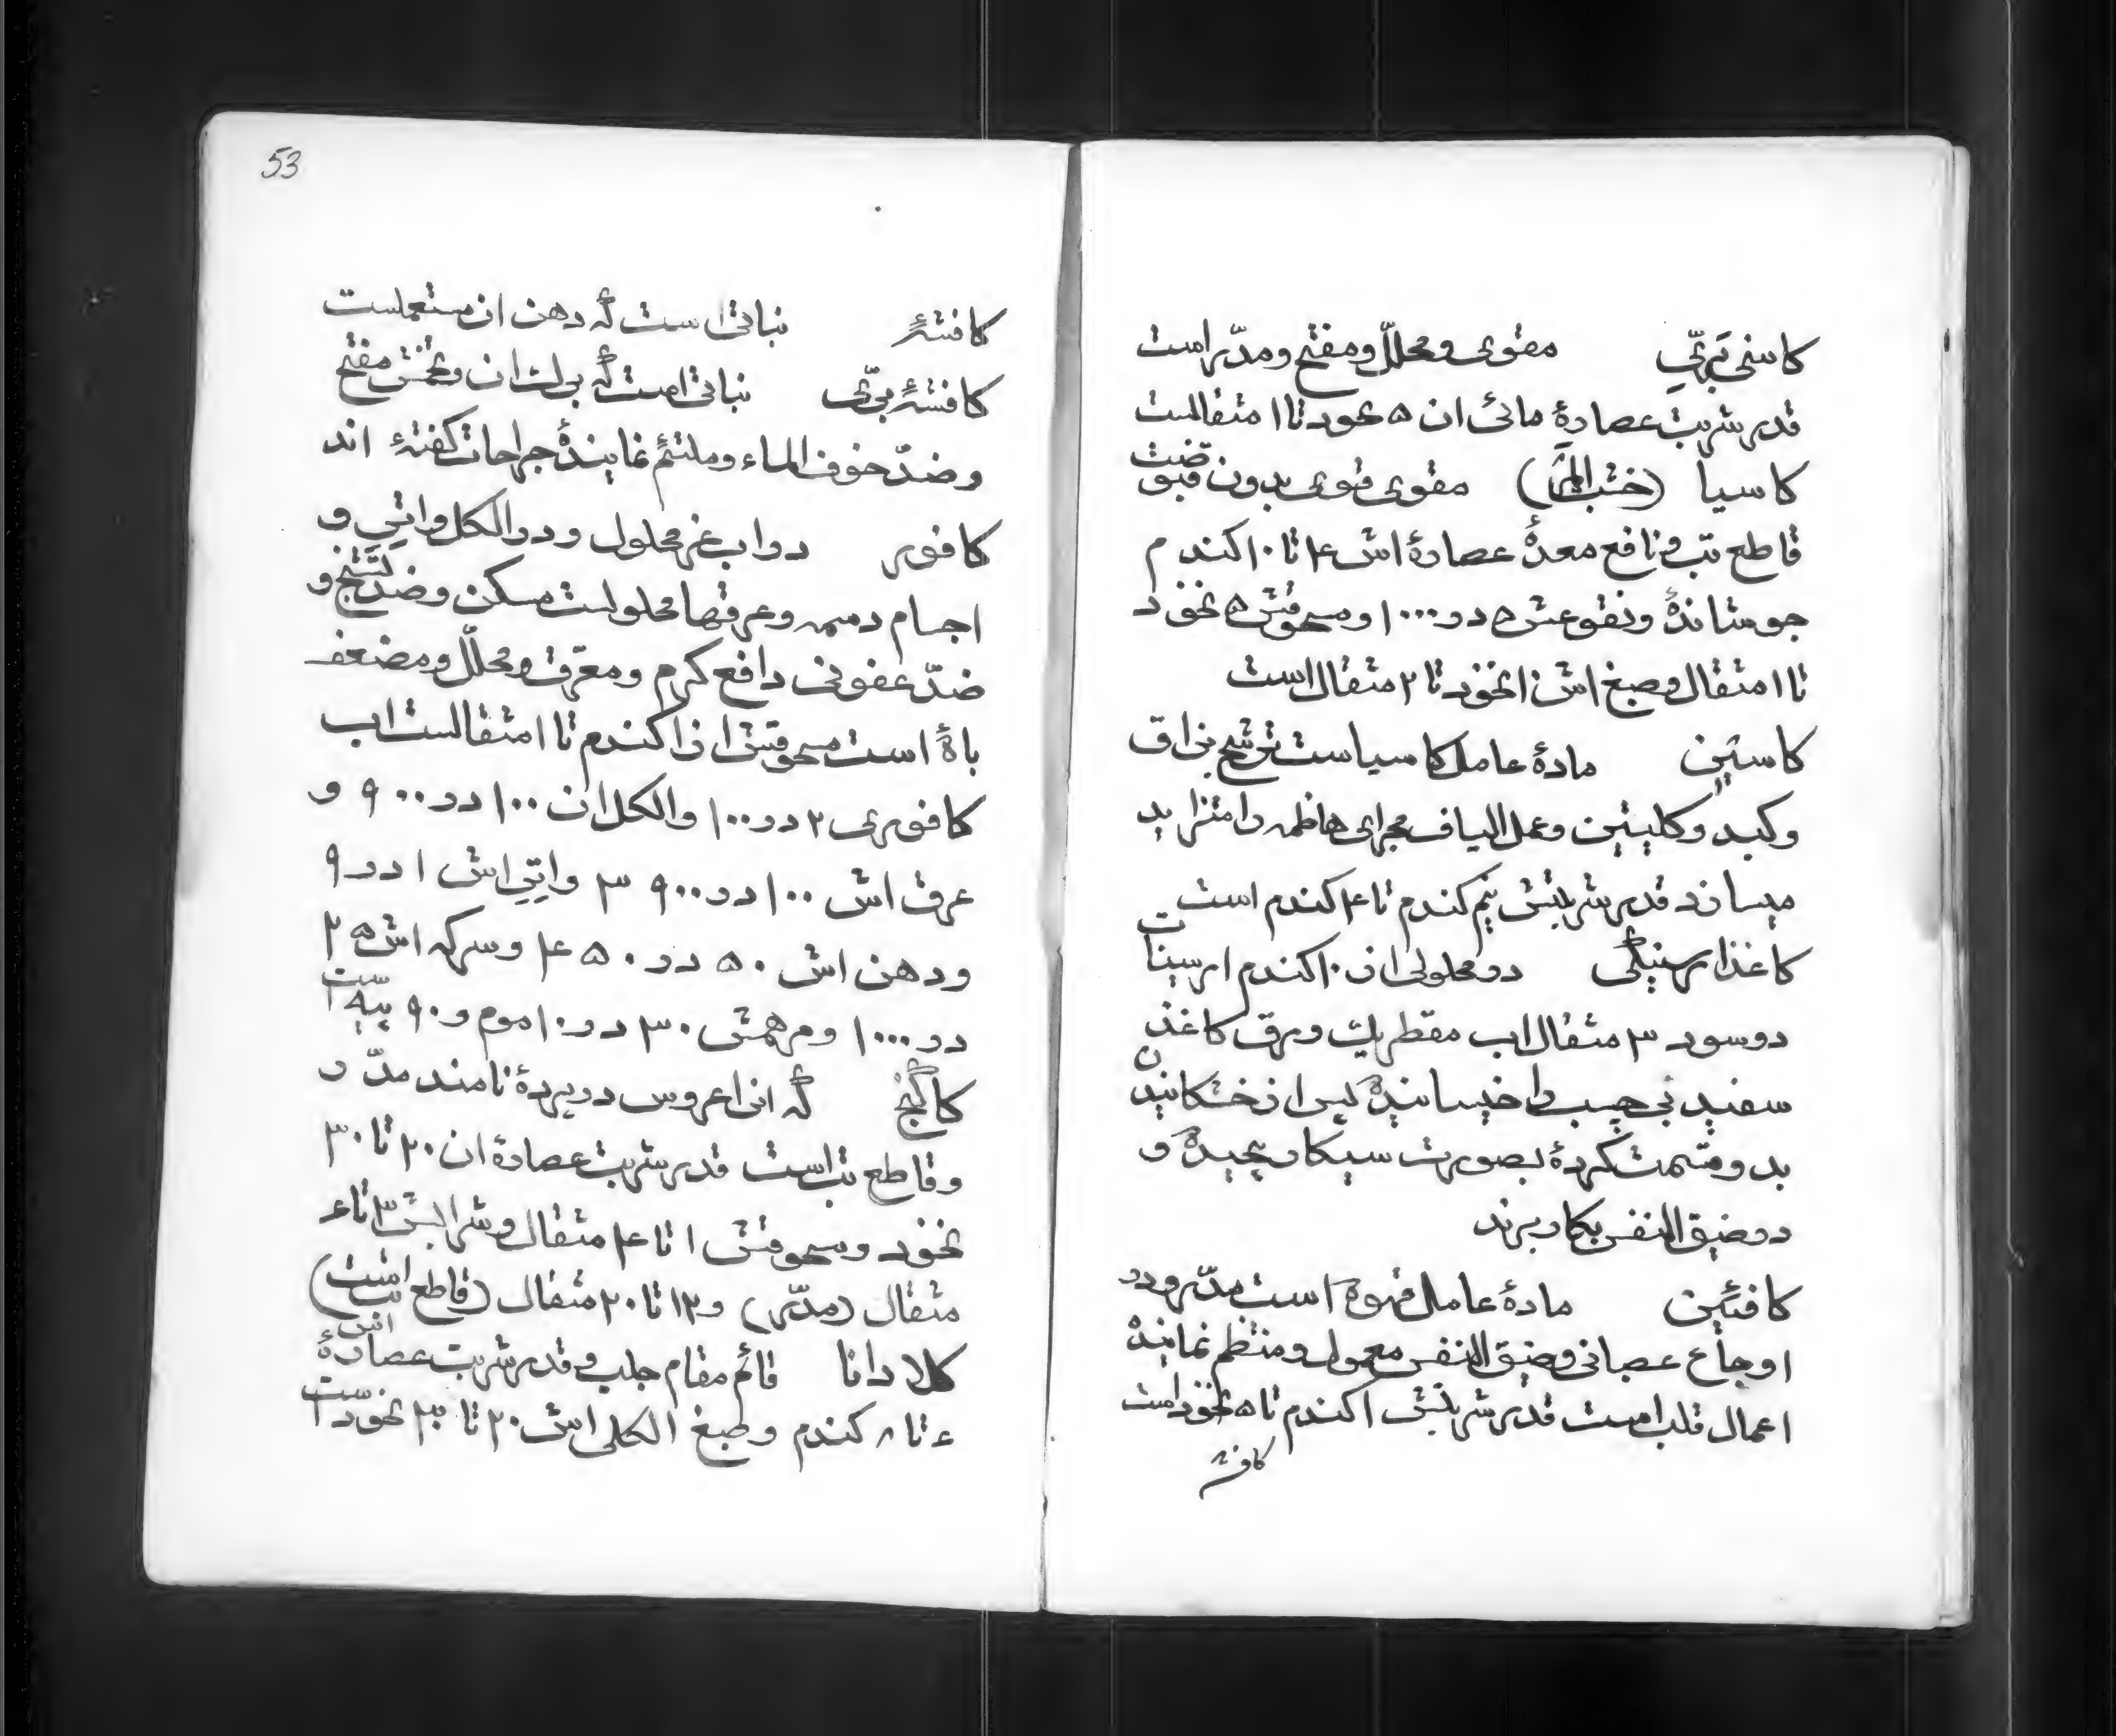 کاسنی بَرّیِ مقوی و محلّل و مفتح و مدّر است
قدر شربت عصارهٔ مائی ان ۵ نخود تا ۱ مثقالست
کاسیا (خشب المرّ) مقوی قوی بدون قبوضت
قاطع تب و نافع معدهٔ عصارهٔ اش ۴ تا ۱۰ کندم
جوشاندهٔ و نقوعش ۵ در ۱۰۰۰ و مسحوقش ۵ نخود
تا ۱ مثقال و صبغ اش ۱ نخود تا ۲ مثقال است
کاسئین مادهٔ عامل کاسیاست ترشح بزاق
و کبد و کلیتین و عمل الیاف مجرای هاظمه را متزاید
میسازد قدر شربتش نیم کندم تا ۴ کندم است
کاغذ ارسنیکی در محلولی از ۱۰ کندم ارسینات
دوسود ۳ مثقال اب مقطر یک ورق کاغذ
سفید بی چسب را خیسانیدهٔ پس از خشکانیدن
بد و قسمت کردهٔ بصورت سیکار پیچیدهٔ و
در ضیق النفس بکار برند
کافئین مادهٔ عامل قهوهٔ است مدّر و در
اوجاع عصبانی و ضیق النفس معمول و منتظم نمایندهٔ
اعمال قلب است قدر شربتش ۱ کندم تا ۵ نخود است
کافشه
53
کافشهٔ نباتی است کهٔ دهن ان مستعملست
کافشهٔ برّی نباتی است کهٔ برک ان و تخمش مفتح
و ضدّ خوف الماء و ملتئم نمایندهٔ جراحات کفتهٔ اند
کافور در اب غیر محلول و در الکل و اتیِر و
اجسام دسمه و عرقها محلولست مسکن و ضد تشنج و
ضدّ عفونی دافع کرم و معرّق و محلّل و مضعف
باهٔ است مسحوقش از ۱ کندم تا ۱ مثقالست اب
کافوری ۲ در ۱۰۰۰ و الکل ان ۱۰۰ در ۹۰۰ و
عرق اش ۱۰۰ در ۳۹۰۰ و اتیِر اش ۱ در ۹
و دهن اش ۵۰ در ۴۵۰ و سرکه اش ۲۵
در ۱۰۰۰ و مرهمش ۳۰ در ۱۰ موم و ۹۰ پیه است
کاکنج کهٔ انرا عروس در پردهٔ نامند مدّر
و قاطع تب است قدر شربت عصارهٔ ان ۲۰ تا ۳۰
نخود و مسحوقش ۱ تا ۴ مثقال و شرابش ۳ تا ۶
مثقال (مدّر) و ۱۲ تا ۲۰ مثقال (قاطع تب است)
کلادانا قائم مقام جلب و قدر شربت عصارهٔ اش
۴ تا ۸ کندم و صبغ الکلی اش ۲۰ تا ۳۰ نخود است